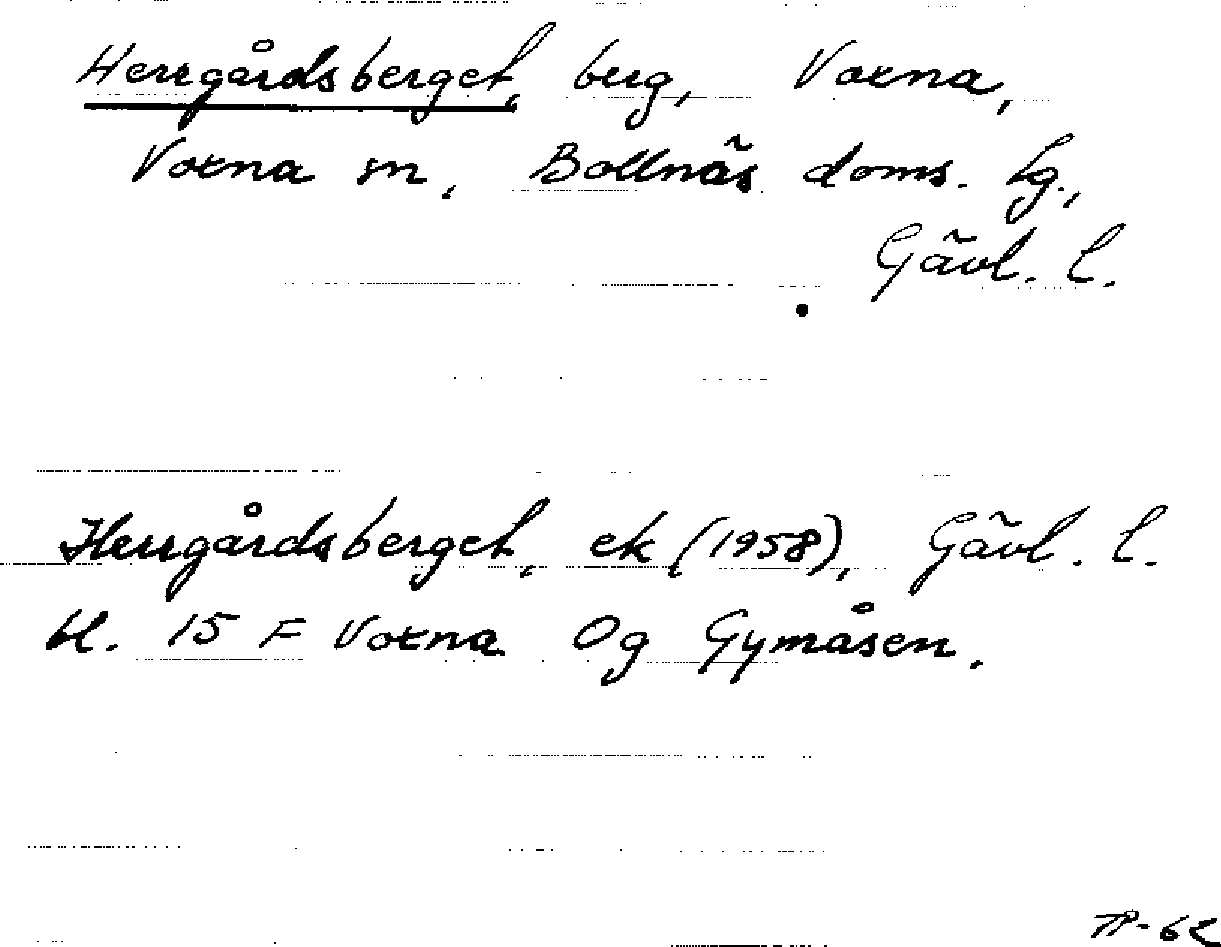 Herrgårdsberget, berg, Voxna,
Voxna sn, Bollnäs doms. lg.,
Gävl. l.
Herrgårdsberget, ek (1958), Gävl. l.
bl. 15 F Voxna 0g Gymåsen.
TP-62